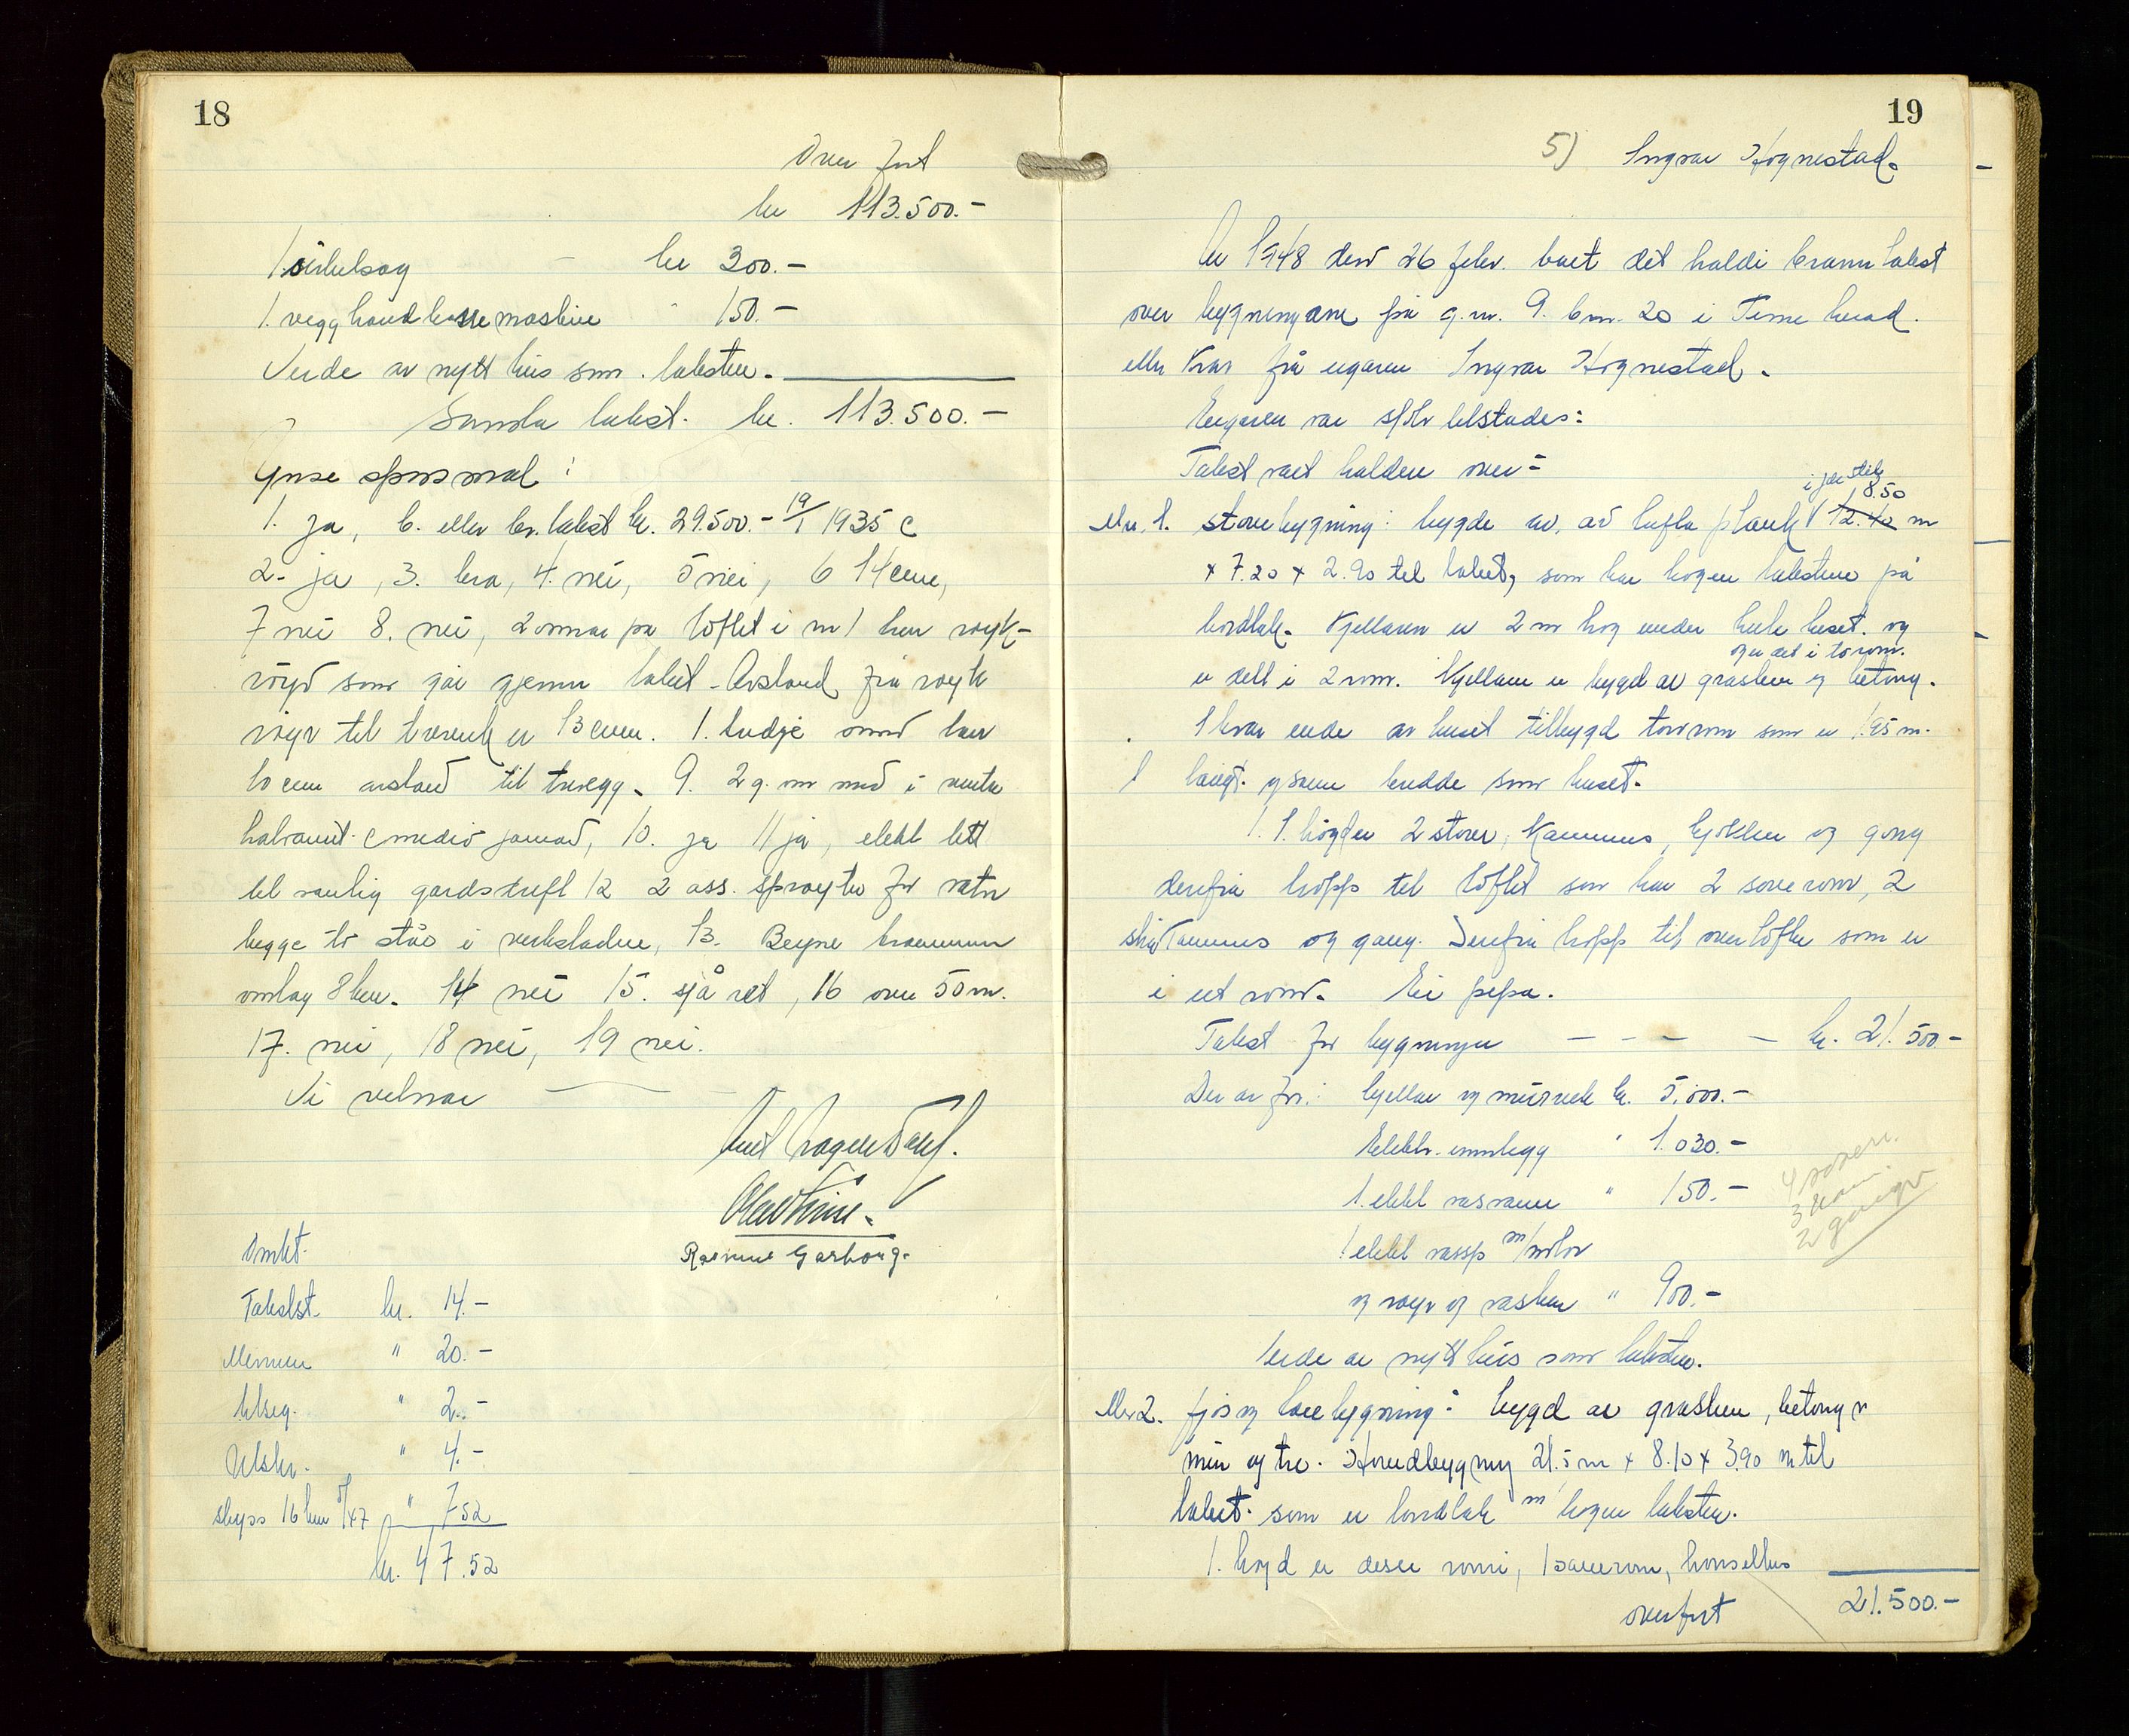 18
Over ført
kr 113.500.-
1 sirkelsag kr 300.-
1. vegghandkasse maskin " 150.-
Verde av nytt hus som taksten.
Samla takst. kr. 113.500.-
Ymse spørsmål:
1. ja, b. eller br. takst kr. 29.500.- 19/1 1935 c
2- ja, 3. bra, 4. nei, 5 nei, 6 14 cm,
7 nei 8. nei, 2 omnar på loftet i nr 1 har røyk-
røyr som går gjenn taket - Avstand frå røyk
røyr til treverk er 13 cm. 1. tredje omn har
10 cm avstand til trevegg. 9. 2 g. om
10. ja 11 ja, elekt lett
til vanlig gardsdrift 12 2 ass. sprøyter for vatn
begge to står i verkstaden, 13. Bryne brannvern
omlag 8 km. 14 nei 15. sjå ret, 16 over 50 m.
17. nei, 18 nei, 19 nei.
Vi vitnar
Rasmus Garborg.
Omkt.
Takslst. kr. 14.-
Mennene " 20.-
Utseg. " 2.-
Utskr. " 4.-
skyss 16 km " 7 52
kr. 47.52
19
5) Ingvar Høgnestad.
År 1948 den 26 febr. vart det haldi brann takst
over bygningane på g.nr. 9. b.nr. 20 i Time herad.
etter krav frå eigaren Ingvar Høgnestad.
Eigaren var sjølv tilstades:
Takst vart halden over:
i jærstil
8.50
Nr. 1. stovebygning: bygde av, av lafta plank 12.40 m
x 7.20 x 2.90 til taket, som har hogen takstein på
bordtak. Kjellaren er 2 m høg under heile huset. og
og er delt i to rom.
er delt i 2 rom. Kjellaren er bygd av gråstein og betong.
I kvar ende av huset tilbygd torvrom som er 1.95 m.
i lengt. og same bredde som huset.
I 1. høgd er 2 stover, kammers, kjøkken og gong
derifrå tropp til loftet som har 2 soverom, 2
skråkammers og gong. Derifrå tropp til overloftet som er
i eit rom. Ei pipa.
Takst for bygningen - - - - kr. 21.500.-
Der av for: kjellar og murverk kr. 5.000.-
Elektr. innlegg " 1.030.-
1. elekt vasvarmer " 150.-
1 elekt vassp m/motor
og røyr og vasker " 900.-
4 soverr.
3 kam.
2 ganger
Verde av nytt hus som taksten.
Nr 2. fjos og løebygning: bygd av gråstein, betong
mur og tre. Hovudbygning 21.5 m x 8.10 x 3.90 m til
taket. som er bordtak m/ hogen takstein.
1. høgd er desse romi, 1 sauerom, hønsehus
overført 21.500.-